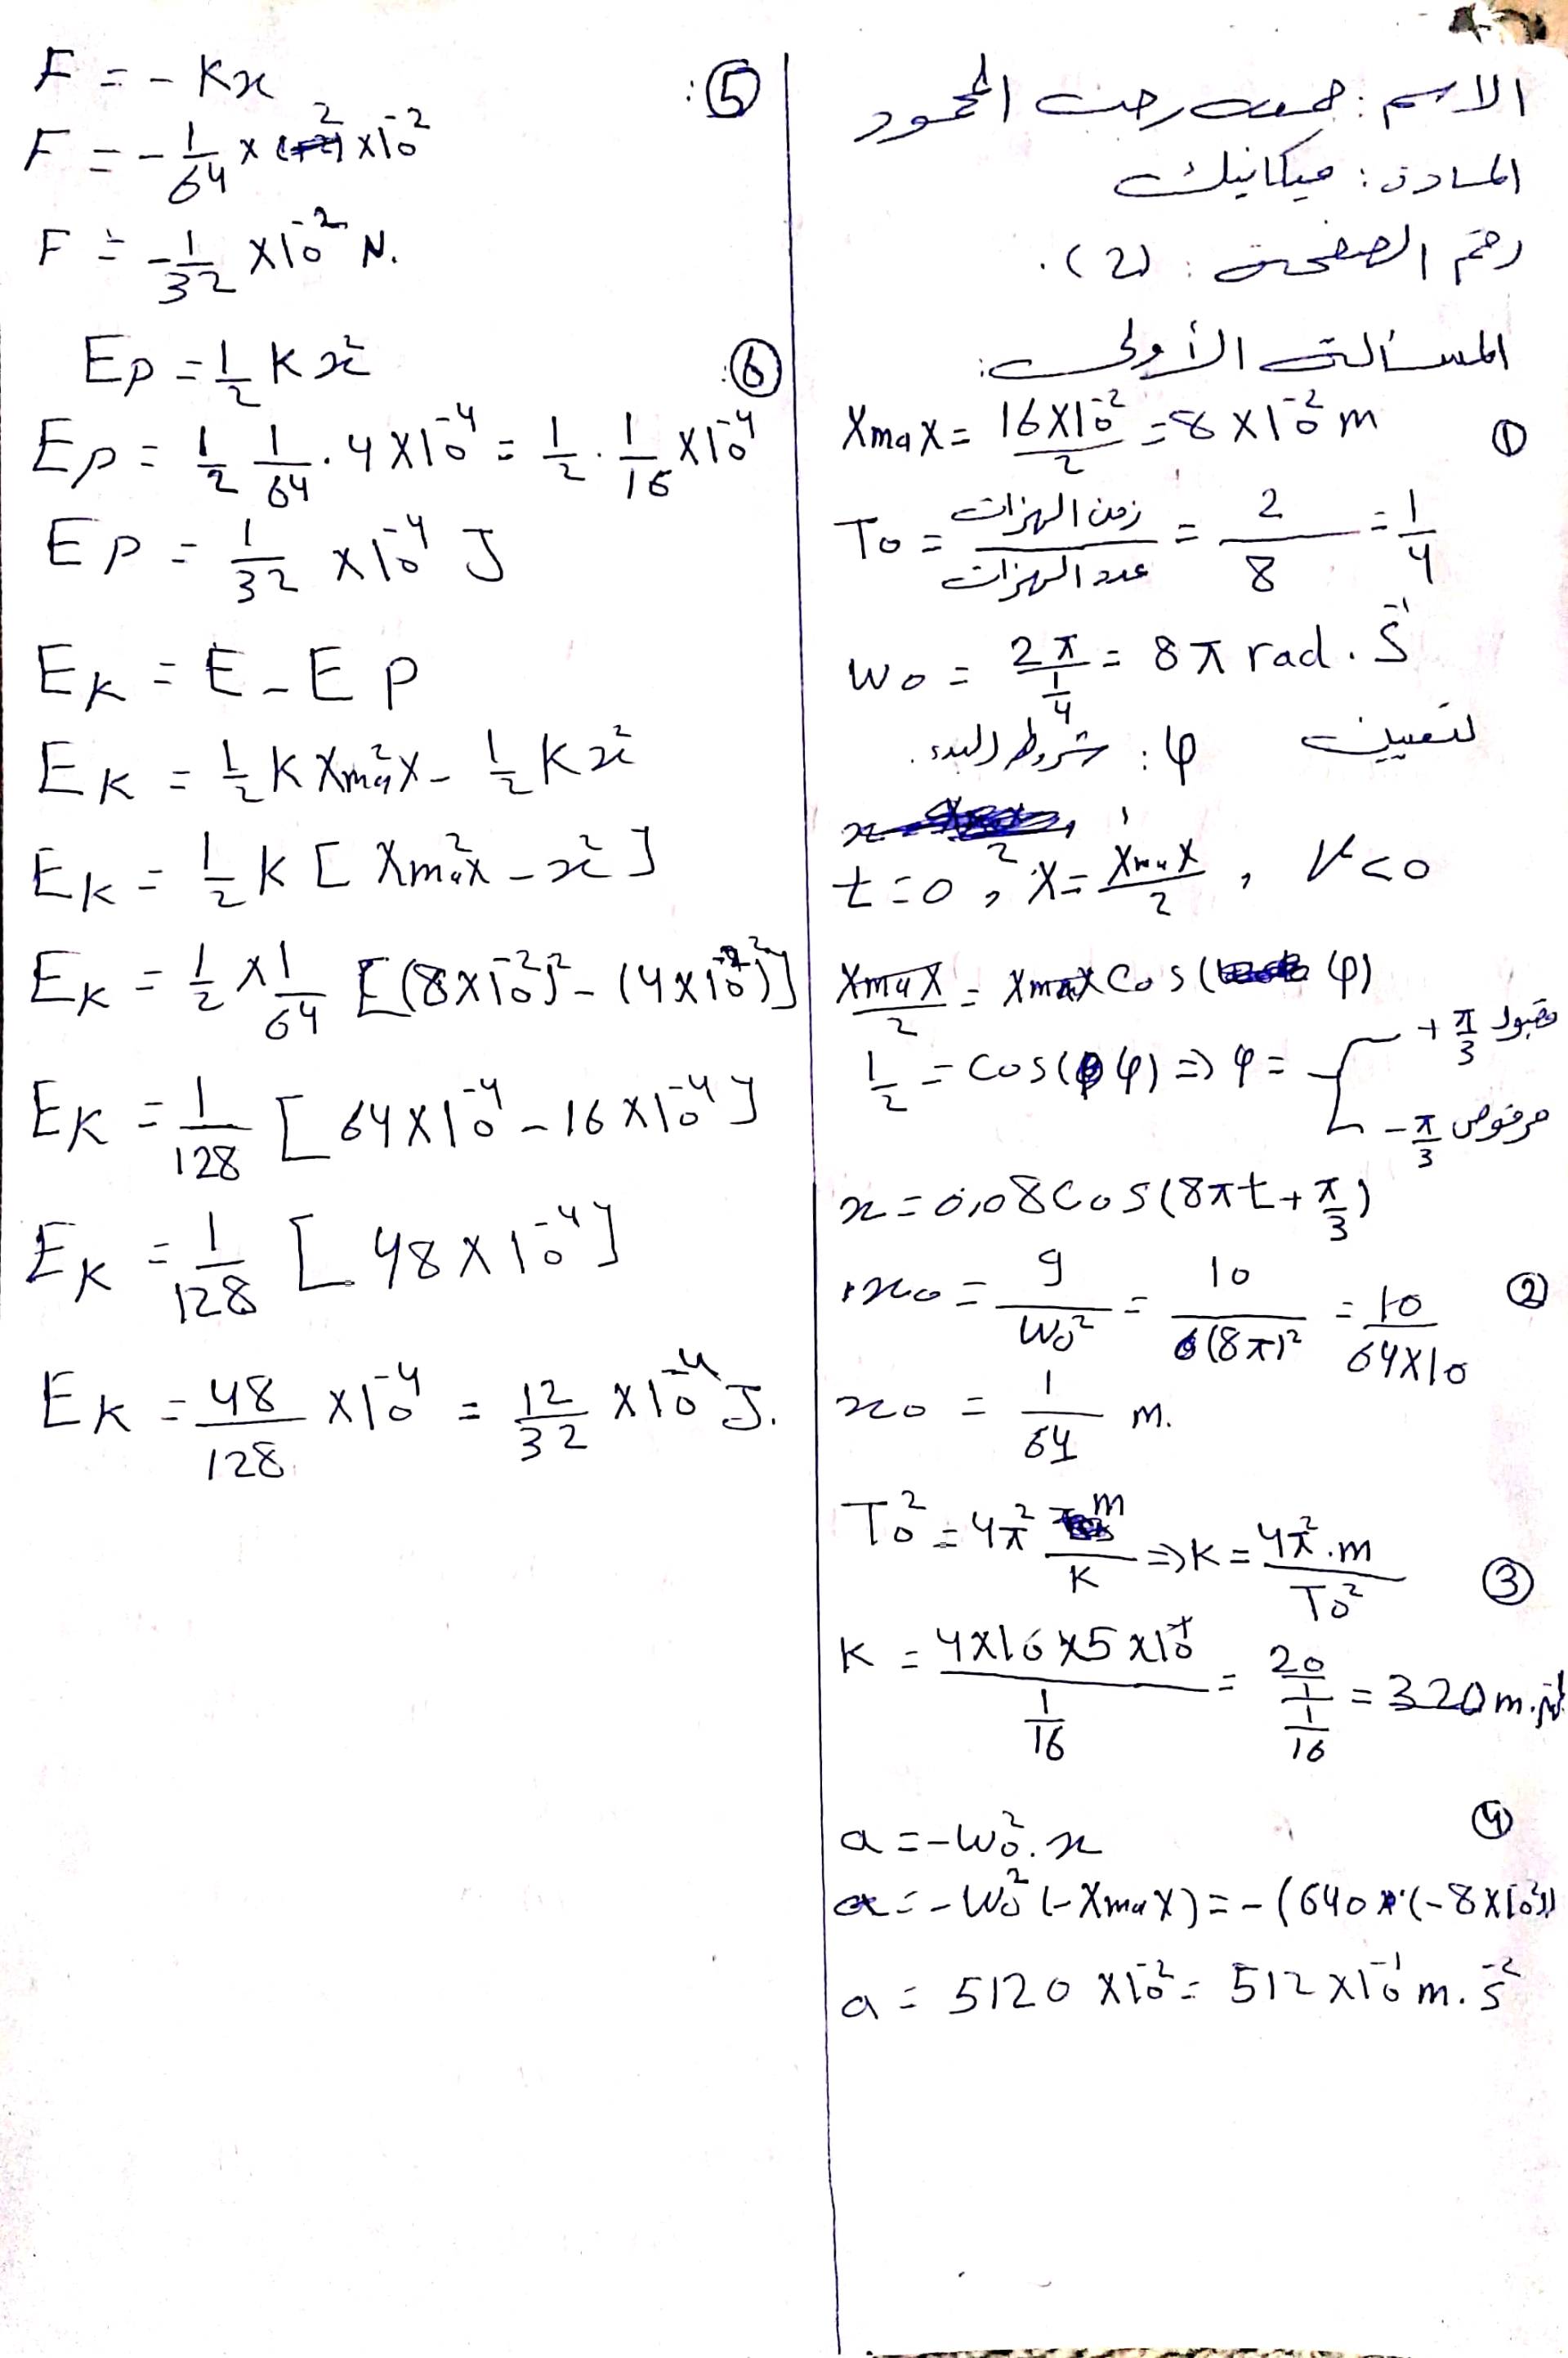 الاسم: جمعه رجب المحمود
المادة: ميكانيك
رقم الصفحة: (2).
المسألة الأولى:
① Xmax = 16×10⁻²/2 = 8×10⁻² m
T₀ = زمن الهزات/عدد الهزات = 2/8 = 1/4
W₀ = 2π/(1/4) = 8π rad.S⁻¹
لتعيين φ: شروط البدء.
t=0, X = Xmax/2, V<0
Xmax/2 = Xmax Cos(φ)
1/2 = Cos(φ) ⇒ φ = { +π/3 مقبول
-π/3 مرفوض
x = 0,08 Cos(8πt + π/3)
② x₀ = g/W₀² = 10/(8π)² = 10/64×10
x₀ = 1/64 m.
③ T₀² = 4π² m/K ⇒ K = 4π².m/T₀²
K = 4×10×5×10⁻¹/(1/16) = 20/(1/16) = 320 m.N⁻¹
④
a = -W₀².x
a = -W₀²(-Xmax) = -(640×(-8×10⁻²))
a = 5120 ×10⁻² = 512×10⁻¹ m.s⁻²
⑤: F = -Kx
F = -1/64 × 2 ×10⁻²
F = -1/32 ×10⁻² N.
⑥: Ep = 1/2 K x²
Ep = 1/2 1/64 . 4×10⁻⁴ = 1/2 . 1/16 ×10⁻⁴
Ep = 1/32 ×10⁻⁴ J
EK = E - Ep
EK = 1/2 K Xmax² - 1/2 K x²
EK = 1/2 K [Xmax² - x²]
EK = 1/2 × 1/64 [(8×10⁻²)² - (4×10⁻²)²]
EK = 1/128 [64×10⁻⁴ - 16×10⁻⁴]
EK = 1/128 [48×10⁻⁴]
EK = 48/128 ×10⁻⁴ = 12/32 ×10⁻⁴ J.